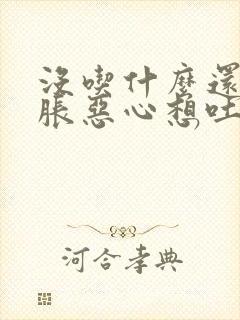 沒喫什麼還
脹惡心想吐,
河合孝典